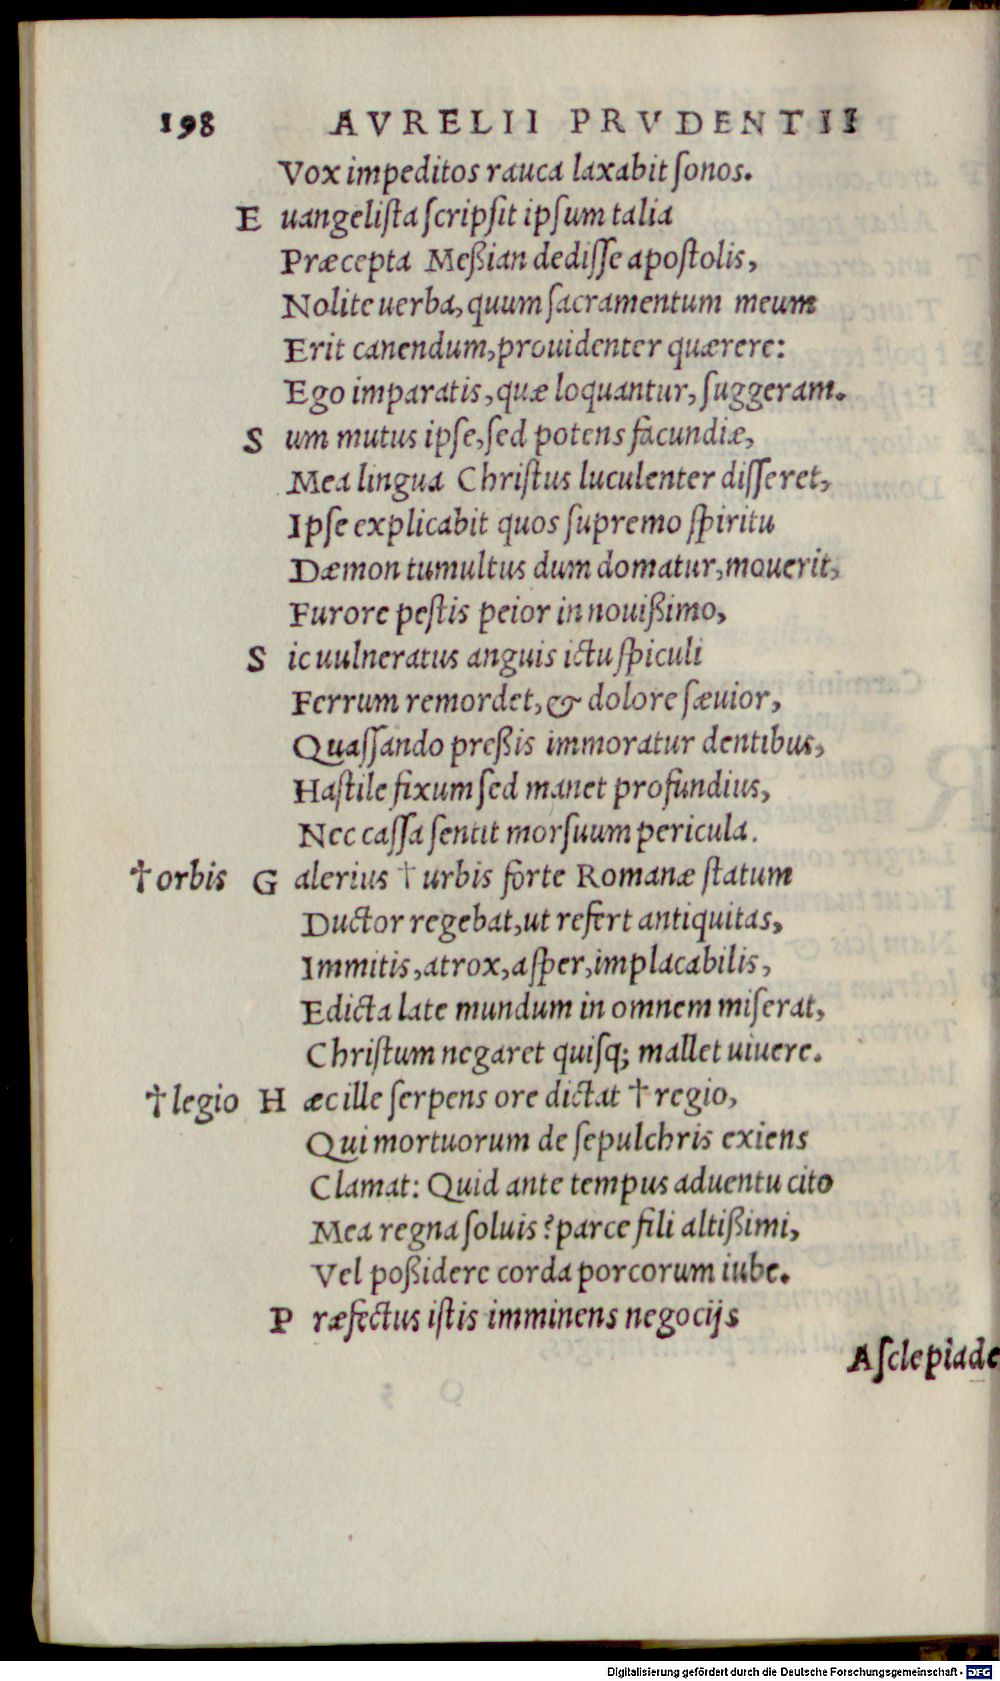 198 AVRELII PRVDENTII
Vox impeditos rauca laxabit ſonos.
E uangeliſta ſcripſit ipſum talia
Præcepta Meßian dediſſe apoſtolis,
Nolite uerba, quum ſacramentum meum
Erit canendum, prouidenter quærere:
Ego imparatis, quæ loquantur, ſuggeram.
S um mutus ipſe, ſed potens facundiæ,
Mea lingua Chriſtus luculenter diſſeret,
Ipſe explicabit quos ſupremo ſpiritu
Dæmon tumultus dum domatur, mouerit,
Furore peſtis peior in nouißimo,
S ic uulneratus anguis ictu ſpiculi
Ferrum remordet, & dolore ſæuior,
Quaſſando preßis immoratur dentibus,
Haſtile fixum ſed manet profundius,
Nec caſſa ſentit morſuum pericula.
†orbis G alerius † urbis forte Romanæ ſtatum
Ductor regebat, ut refert antiquitas,
Immitis, atrox, aſper, implacabilis,
Edicta late mundum in omnem miſerat,
Chriſtum negaret quiſq; mallet uiuere.
†legio H æc ille ſerpens ore dictat † regio,
Qui mortuorum de ſepulchris exiens
Clamat: Quid ante tempus aduentu cito
Mea regna ſoluis? parce fili altißimi,
Vel poßidere corda porcorum iube.
P ræfectus iſtis imminens negocijs
Aſclepiade
Digitalisierung gefördert durch die Deutsche Forschungsgemeinschaft - DFG